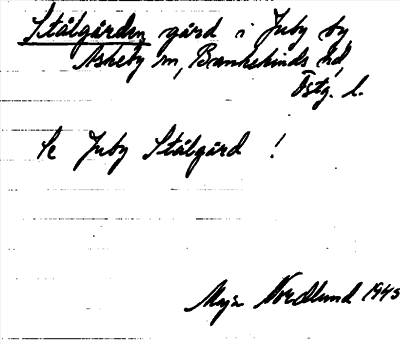 Stålgården gård i Juby by
Askeby sn, Bankekinds hd,
Östg. l.
Se Juby Stålgård !
Maja Nordlund 1945